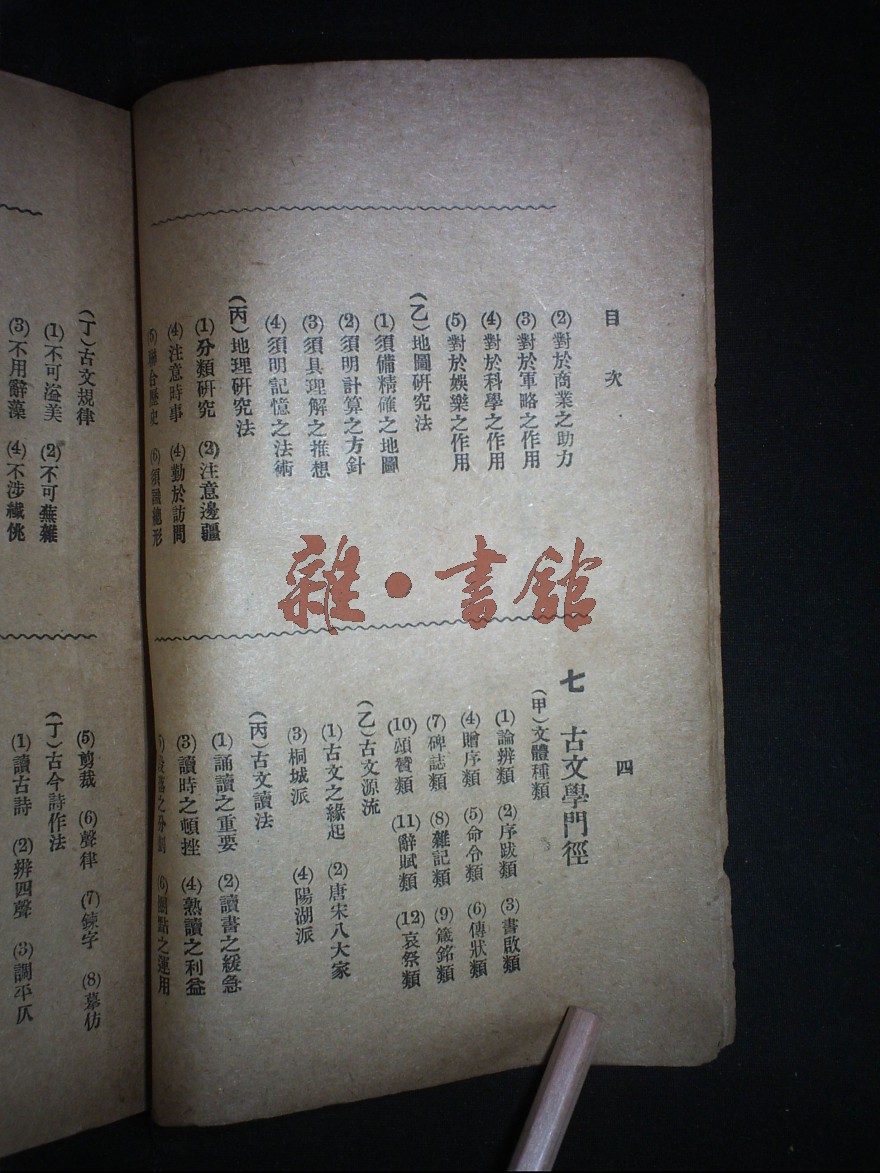 目次
四
(2)對於商業之助力
(3)對於軍略之作用
(4)對於科學之作用
(5)對於娛樂之作用
(乙)地圖研究法
(1)須備精確之地圖
(2)須明計算之方針
(3)須具理解之推想
(4)須明記憶之法術
(丙)地理研究法
(1)分類研究 (2)注意邊疆
(4)注意時事 (4)勤於訪問
(5)聯合歷史 (6)須識總形
七 古文學門徑
(甲)文體種類
(1)論辨類 (2)序跋類 (3)書啟類
(4)贈序類 (5)命令類 (6)傳狀類
(7)碑誌類 (8)雜記類 (9)箴銘類
(10)頌贊類 (11)辭賦類 (12)哀祭類
(乙)古文源流
(1)古文之緣起 (2)唐宋八大家
(3)桐城派 (4)陽湖派
(丙)古文讀法
(1)誦讀之重要 (2)讀書之緩急
(3)讀時之頓挫 (4)熟讀之利益
(5)段落之分劃 (6)圈點之運用
(丁)古文規律
(1)不可溢美 (2)不可蕪雜
(3)不用辭藻 (4)不涉纖佻
(5)剪裁 (6)聲律 (7)鍊字 (8)摹仿
(丁)古今詩作法
(1)讀古詩 (2)辨四聲 (3)調平仄
雜·書館